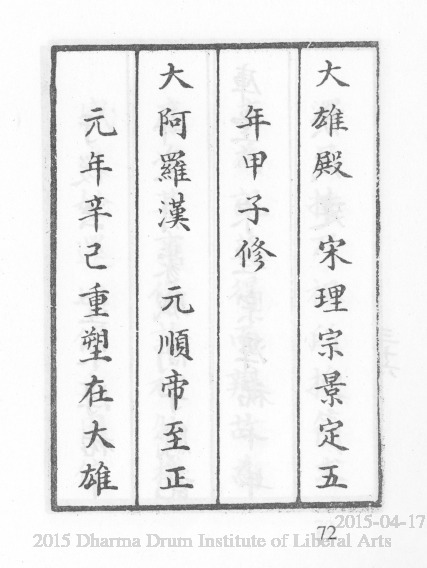 大雄殿　宋理宗景定五
年甲子修
大阿羅漢　元順帝至正
元年辛己重塑在大雄
72
2015-04-17
2015 Dharma Drum Institute of Liberal Arts